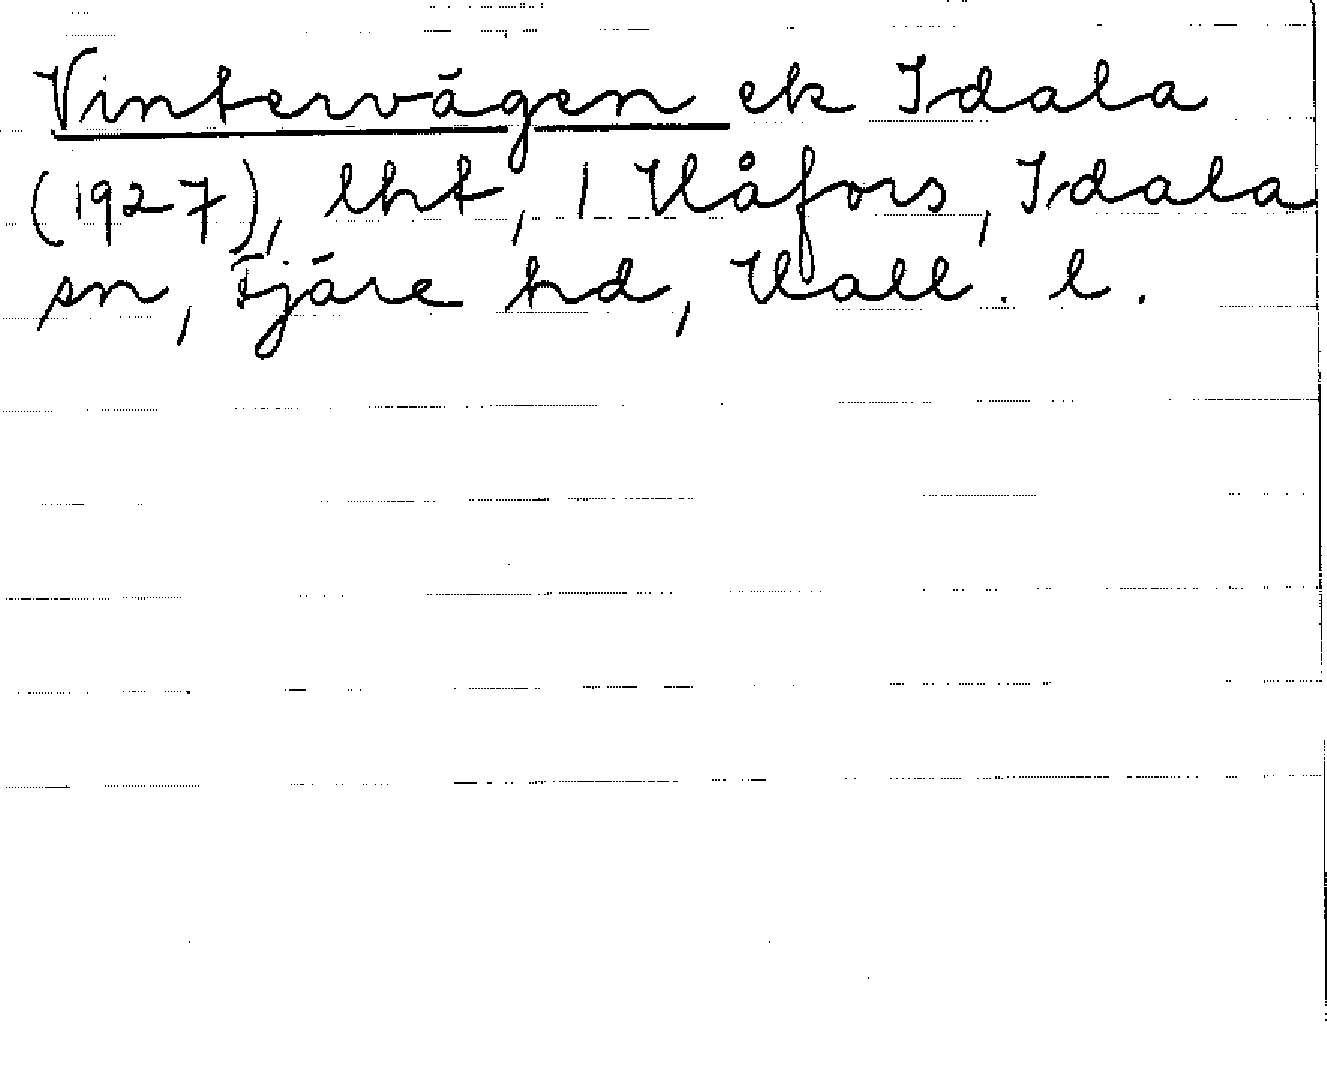 Vintervägen ek Idala
(1927), lht, 1 Håfors, Idala
sn, Fjäre hd, Hall. l.